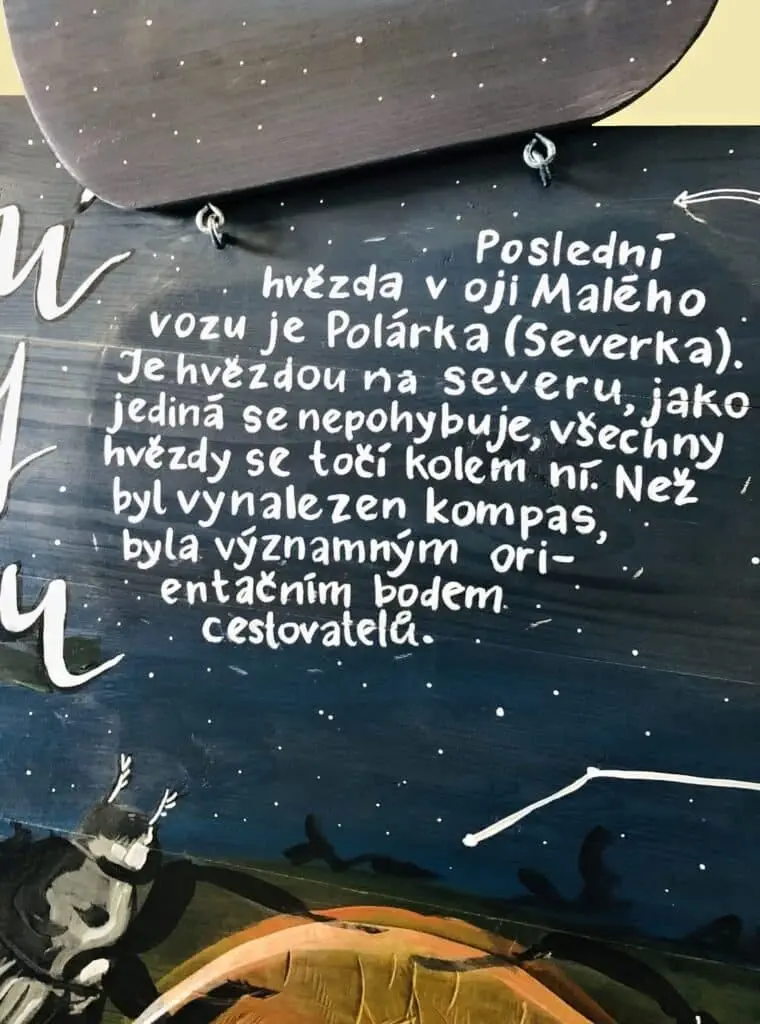 Poslední
hvězda v oji Malého
vozu je Polárka (Severka).
Je hvězdou na severu, jako
jediná se nepohybuje, všechny
hvězdy se točí kolem ní. Než
byl vynalezen kompas,
byla významným ori-
entačním bodem
cestovatelů.